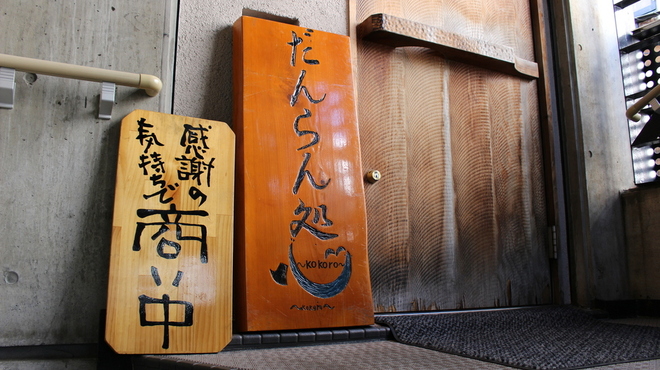 感謝の
気持ちで
商い中
だんらん処
心
~kokoro~